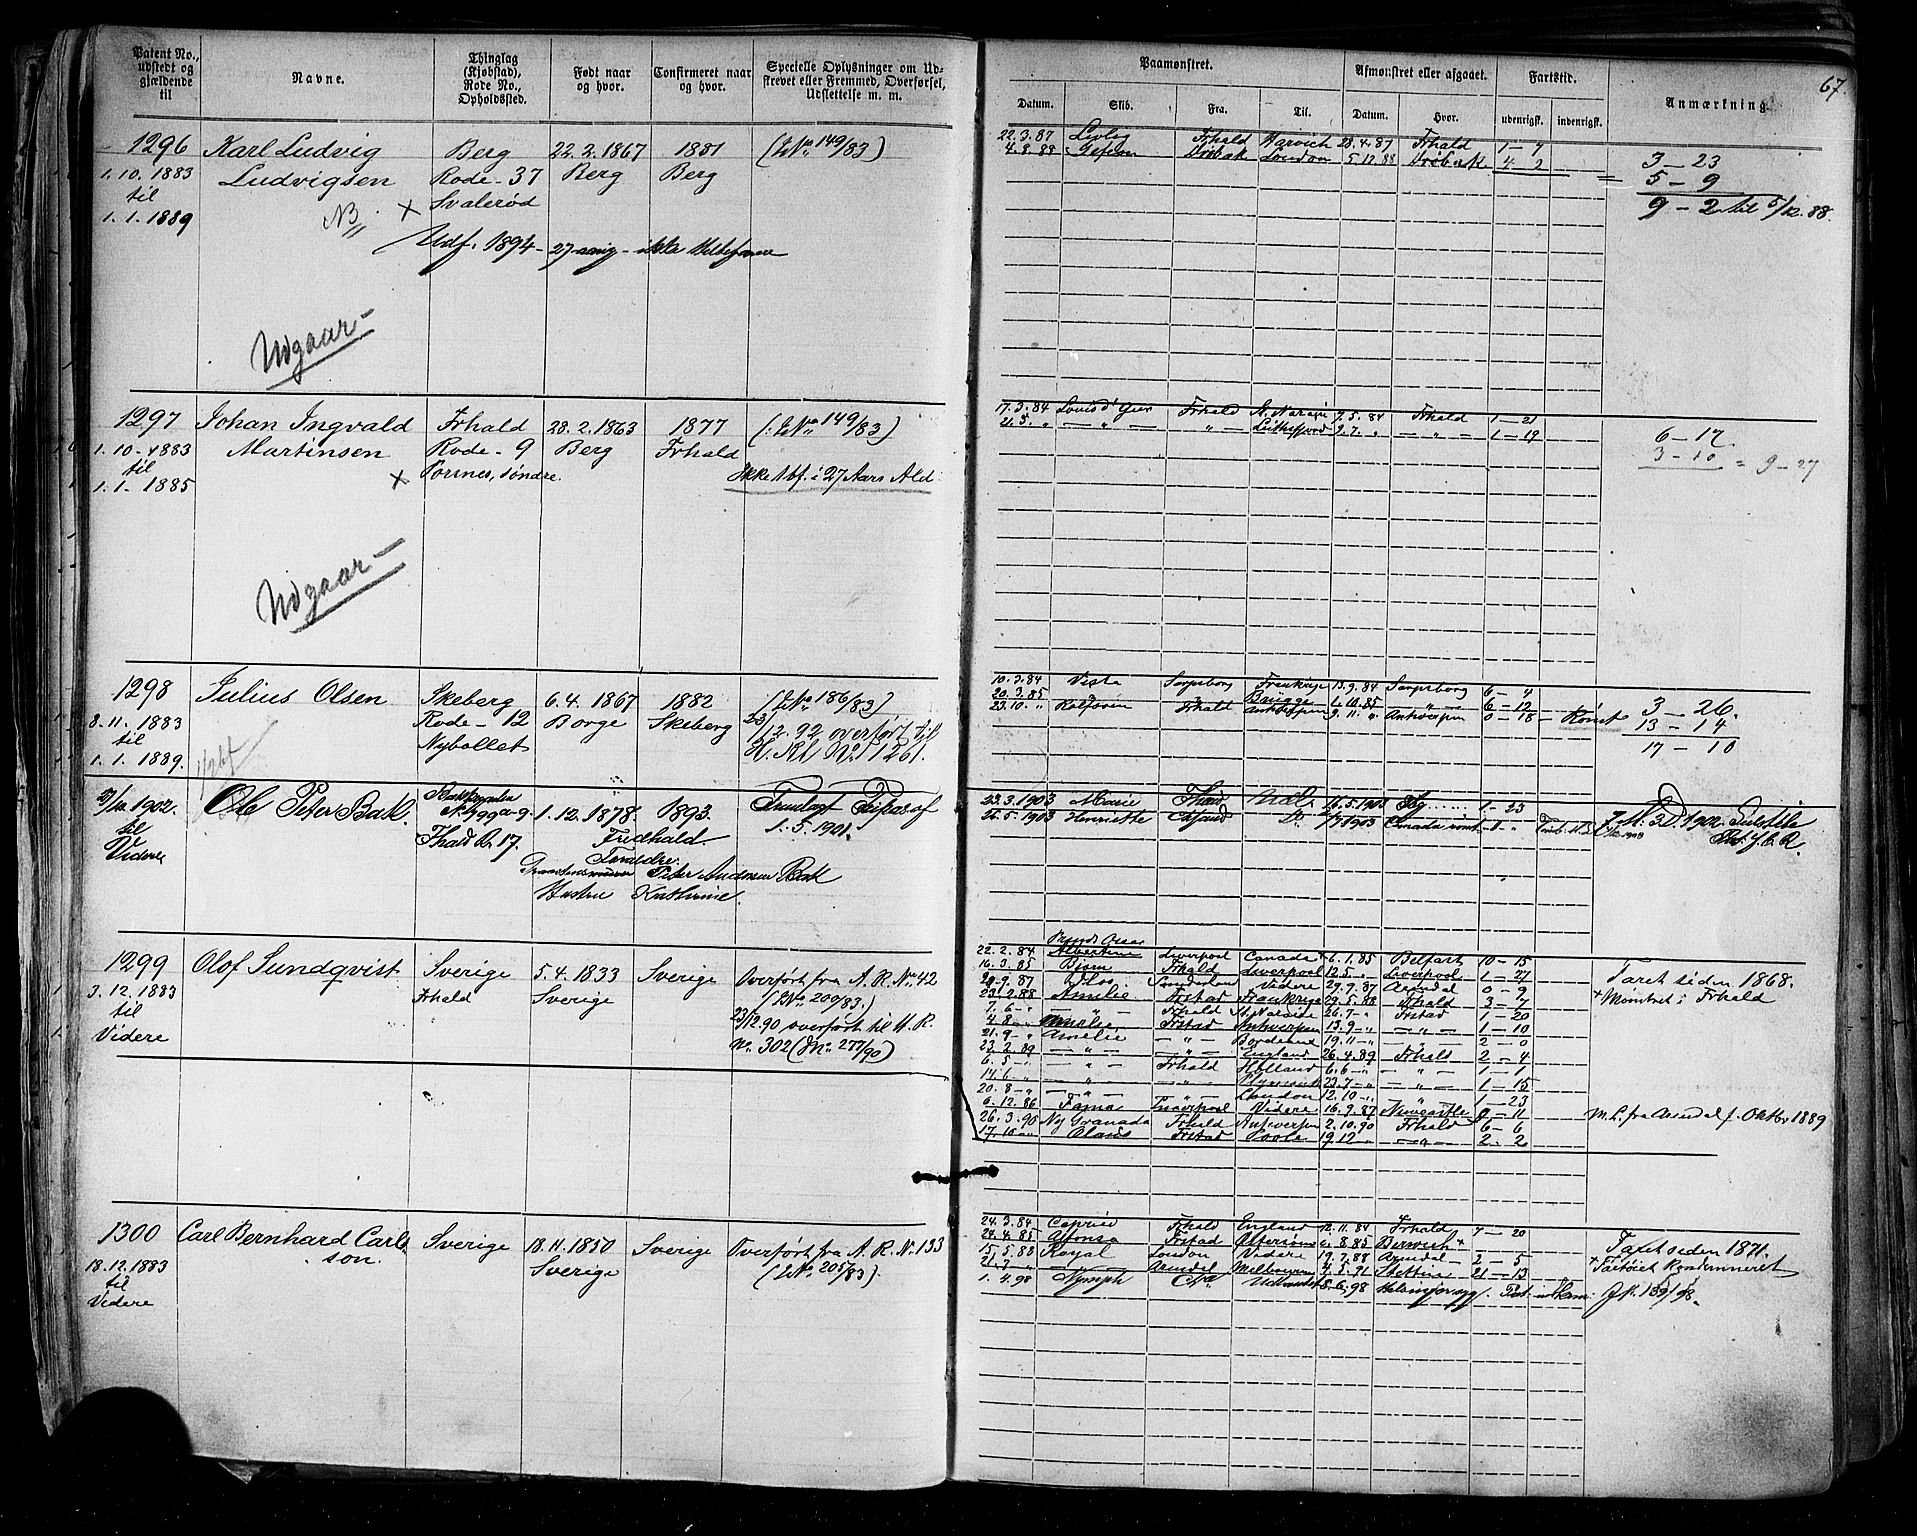 67.
Patent No., udstedt og gjældende til
Navne.
Thinglag (Kjøbstad), Rode No., Opholdssted.
Født naar og hvor.
Confirmeret naar og hvor.
Specielle Oplysninger om Udskrevet eller Fremmed, Overførsel, Udslettelse m. m.
Paamønstret.
Afmønstret eller afgaaet.
Fartstid.
Anmærkning.
Datum. Skib. Fra. Til. Datum. Hvor. udenrigsk. indenrigsk.
1296 Karl Ludvig Berg 22. 2. 1867 1881 (LNo 149/83)
1. 10. 1883 Ludvigsen Rode - 37 Berg Berg
til Svalerød
1. 1. 1889 NB. x
Udf. 1894 - 27 aarig - ikke
Udgaar -
22.3.87 Frhald Harvich 28.4.87 Frhald 1 - 7
4.8.88 Gefion Drøbak London 5.12.88 Drøbak 4 - 2
3 - 23
5 - 9
9 - 2 til 5/12.88
1297 Johan Ingvald Frhald 28. 2. 1863 1877 (LNo 149/83)
1. 10. 1883 Martinsen Rode - 9 Berg Frhald
til x søndre.
1. 1. 1885 Ikke Udf. i 27 Aars Ald.
Udgaar -
17.3.84 Frhald 7.5.84 Frhald 1 - 21
21.5. „ — „ — „ 9.7. „ — „ — 1 - 19
6 - 17
3 - 10 = 9 - 27
1298 Julius Olsen Skeberg 6. 4. 1867 1882 (LNo 186/83)
8. 11. 1883 Rode - 12 Borge Skeberg 23/12. 92 overført til
til Nybollet H. Rl No 1261.
1. 1. 1889.
10.3.84 Vista Sarpsborg Frankrige 13.9.84 Sarpsborg 6 - 4
20.3.85 Brügge 1.10.85 — „ — 6 - 12
23.10. „ Rolfsøen Frhald Antwerpen 9.11. „ Antwerpen 0 - 18 - Rømt
3 - 26.
13 - 14
17 - 10
1902. Ole Peter Bakl. 1. 12. 1878. 1893.
til No 499a-9. Fridhald. 1. 5. 1901.
Videre Fhald R. 17. Foraldre.
Peter Andreas Bakl
Hustru Kathrine.
23.3.1903 Marie Fhald Udl. 16.5.1903 1 - 23
26.5.1903 Henriette Do 1903
1902
1299 Olof Sundqvist Sverige 5. 4. 1833 Sverige Overført fra A. R. No 42
3. 12. 1883 Frhald Sverige (LNo 200/83.)
til 23/12.90 overført til H. R.
Videre No 302 (LNo 277/90)
22.2.84 Albertine Liverpool Canada 6.1.85 Belfast 10 - 15
16.3.85 Bjørn Frhald Liverpool 12.5. „ Liverpool 1 - 27
20.9.87 Sunderland Videre 29.9.87 Arendal 0 - 9
23.2.88 Amelie Frstad Frankrige 29.5.88 Frhald 3 - 7
7.6 - „ — „ — Frhald St. Nazaire 26.7 - „ Frstad 1 - 20
4.8 - „ Amelie Frstad Antwerpen 13.9 - „ — „ — 1 - 10
21.9 - „ Amelie — „ — Bordeaux 19.11 - „ — „ — 2 - 0
23.2.89 — „ — — „ — England 26.4.89 Frhald 2 - 4
6.5 - „ — „ — Frhald Holland 6.6 - „ — „ — 1 - 1
14.6 - „ — „ — — „ — Plymouth 23.7 - „ — „ — 1 - 15
20.8 - „ — „ — London 12.10 - „ — „ — 1 - 23
6.12.86 Fama Liverpool Videre 16.9.87 Newcastle 9 - 11
26.3.90 Ny Granada Frhald Antwerpen 2.10.90 Frhald 6 - 6
17.10 - „ Olaus Frstad Goole 19.12 „ — „ — 2 - 2
Faret siden 1868.
+ Mønstret i Frhald
M. L. fra Arendal f. Oktbr 1889
1300 Carl Bernhard Carls Sverige 18. 11. 1850 Sverige Overført fra A. R. No 133
18. 12. 1883 son. Sverige (LNo 205/83).
til
Videre
24.3.84 Caprice Frhald England 12.11.84 Frhald 7 - 20
24.4.85 Alfonso Frstad 2.8.85 Berwick +
15.5.88 Royal London Videre 19.7.88 Arendal 2 - 5
21.7 — „ — Arendal Melbourne 4.5.91 Stettin 21 - 13
1.4.98 Nymph Chra 8.6.98 Helsingør
Faret siden 1871.
+ Fartøiet Kondemneret
J. No 139/98.